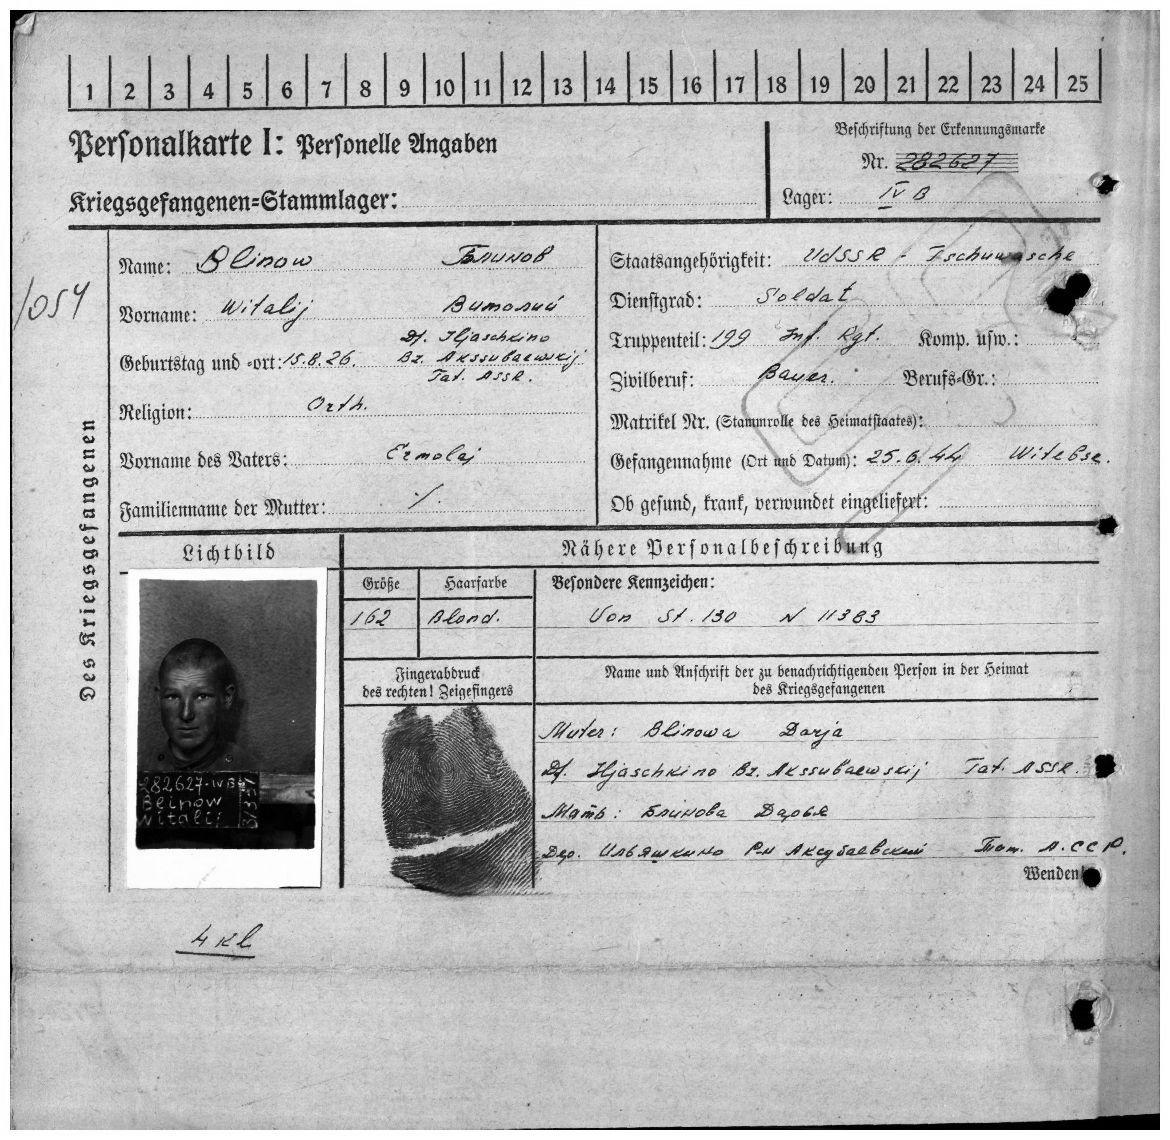 1 2 3 4 5 6 7 8 9 10 11 12 13 14 15 16 17 18 19 20 21 22 23 24 25
Personalkarte I: Personelle Angaben
Beschriftung der Erkennungsmarke
Nr. 282627
Kriegsgefangenen-Stammlager:
Lager: IV B
1054
Des Kriegsgefangenen
Name: Blinow Блинов
Vorname: Witalij Виталий
Geburtstag und -ort: 15.8.26. Df. Iljaschkino
Bz. Akssubaewskij
Tat. ASSR.
Religion: Orth.
Vorname des Vaters: Ermolaj
Familienname der Mutter: ./.
Staatsangehörigkeit: UdSSR - Tschuwasche
Dienstgrad: Soldat
Truppenteil: 199 Inf. Rgt. Komp. usw.:
Zivilberuf: Bauer. Berufs-Gr.:
Matrikel Nr. (Stammrolle des Heimatstaates):
Gefangennahme (Ort und Datum): 25.6.44 Witebsk.
Ob gesund, krank, verwundet eingeliefert:
Lichtbild
Nähere Personalbeschreibung
Größe Haarfarbe Besondere Kennzeichen:
162 Blond. Von St. 130 N 11383
Fingerabdruck
des rechten! Zeigefingers
Name und Anschrift der zu benachrichtigenden Person in der Heimat
des Kriegsgefangenen
Muter: Blinowa Darja
Df. Iljaschkino Bz. Akssubaewskij Tat. ASSR.
Мать: Блинова Дарья
Дер. Ильяшкино Р-н Аксубаевский Тат. А.ССР.
Wenden!
282627-IVB
Blinow
Witalij
4 Kl